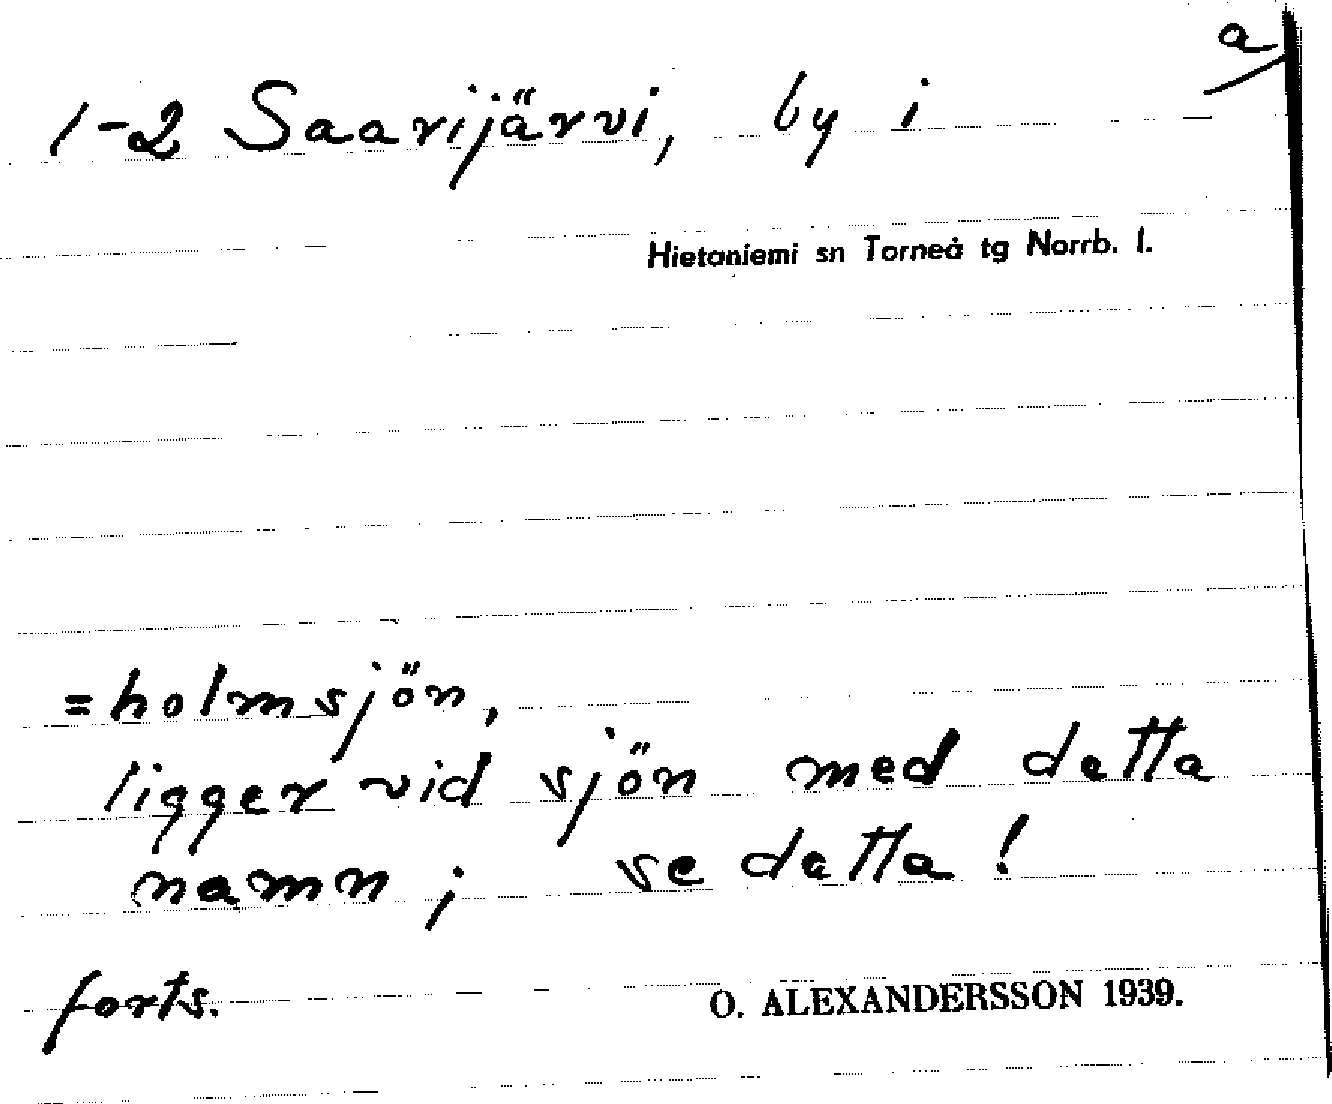 a
1-2 Saarijärvi, by i
Hietaniemi sn Torneå tg Norrb. l.
=holmsjön,
ligger vid sjön med detta
namn; se detta!
forts.
O. ALEXANDERSSON 1939.